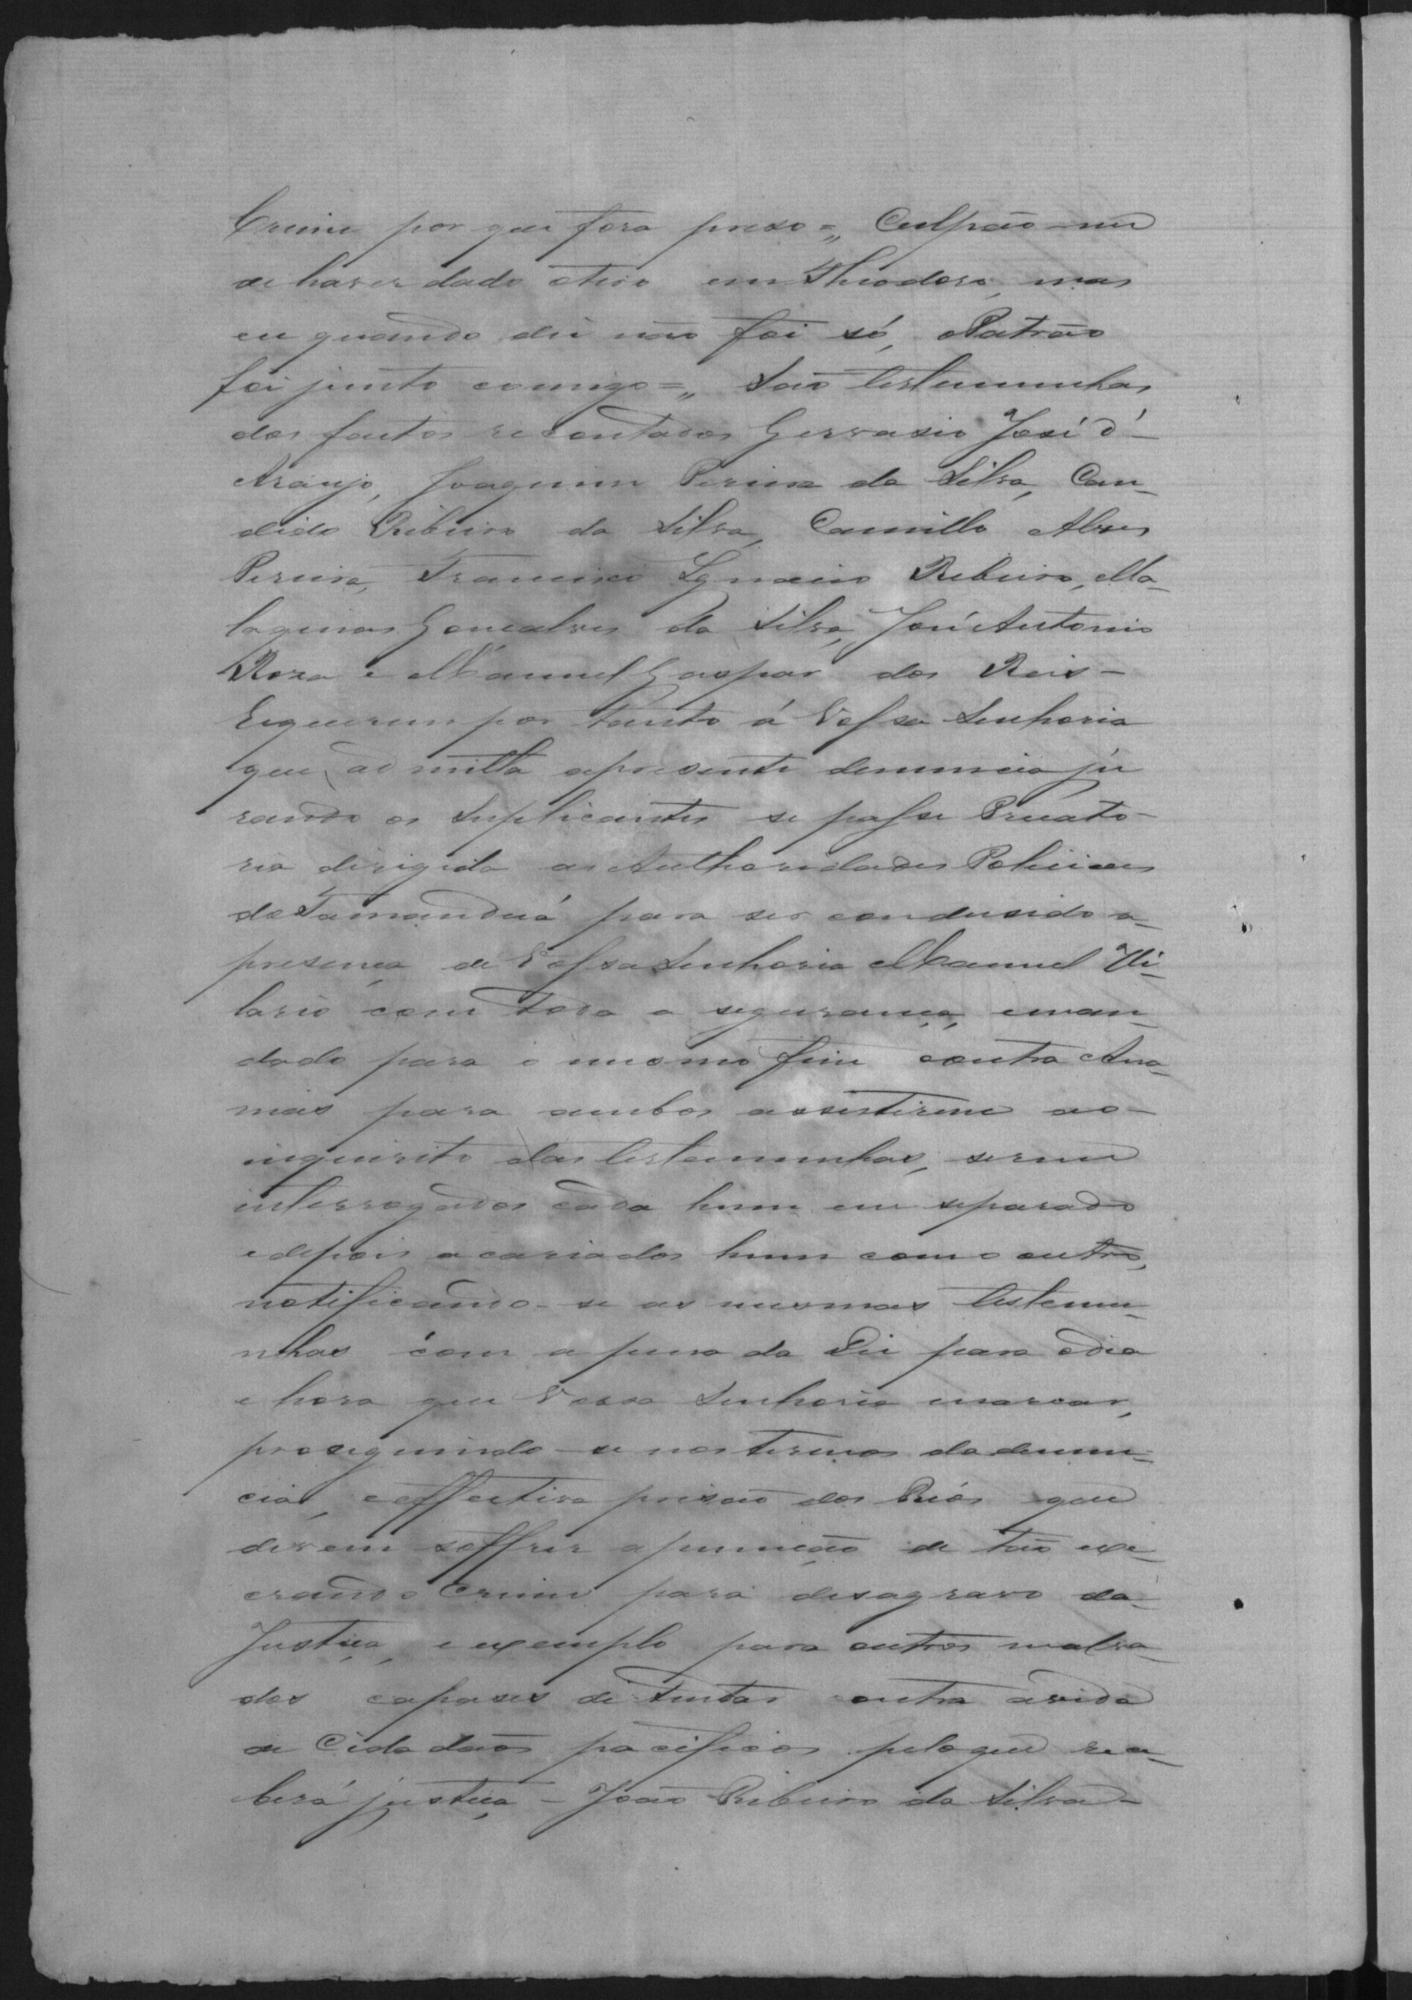 Crime por que fora preso =„ Culpão-me
de haver dado otiro em Theodoro, mas
eu quando dei não foi só, o Patrão
foi junto comigo =„ São testemunhas
dos factos recontados Gervasio José d'
Araujo, Joaquim Pereira da Silva, Can-
dido Ribeiro da Silva, Camillo Alves
Pereira, Francisco Ignacio Ribeiro, Ma-
laquias Gonçalves da Silva, José Antonio
Roza e Manuel Gaspar dos Reis -
Requerem por tanto á Vossa Senhoria
que, admitta apresente denuncia ju
rando os Suplicantes se passe Precato-
ria dirigida as Authoridades Policiaes
de Tamanduá para ser condusido a-
presença de Vossa Senhoria Manuel Hi-
lario com toda a segurança, eman-
dado para o mesmo fim contra Ana-
nias para ambos assistirem ao-
inquirito das testemunhas, serem
interrogados cada hum em separado
edepois acariados hum com o outro,
notificando-se as mesmas testemu-
nhas com a pena da Lei para odia
e hora que Vossa Senhoria marcar,
proseguindo-se nos termos da denun-
cia, eeffectiva prisão dos Réos que
devem soffrer apunição de tão exe-
crando Crime para desagravo da-
Justiça, e exemplo para outros malva-
dos capases de tentar contra avida
de Cidadãos pacificos peloque rece-
berá justiça - João Ribeiro da Silva -